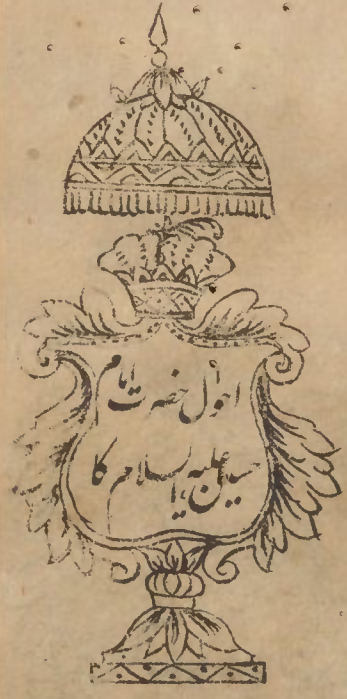 احوال حضرت امام
حسین علیہ السلام کا